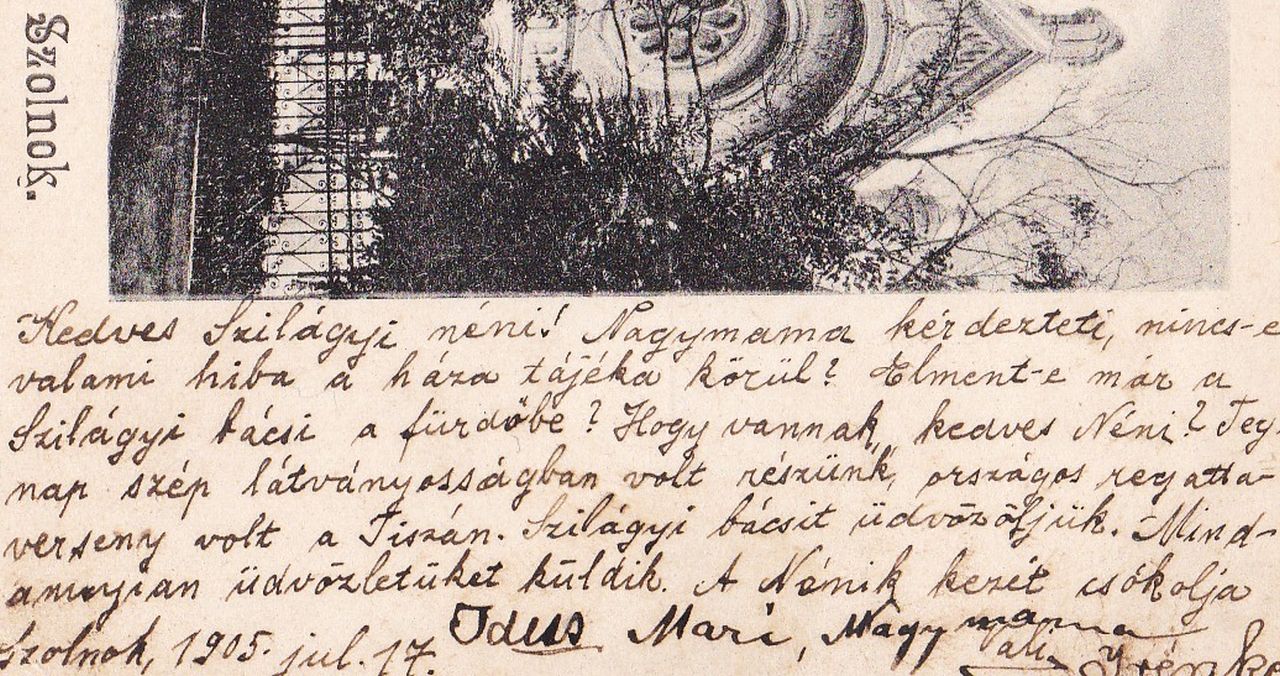 Szolnok.
Kedves Szilágyi néni! Nagymama kérdezteti, nincs-e
valami hiba a háza tájéka körül? Elment-e már a
Szilágyi bácsi a fürdőbe? Hogy vannak, kedves Néni? Teg-
nap szép látványosságban volt részünk, országos regatta-
verseny volt a Tiszán. Szilágyi bácsit üdvözöljük. Mind-
annyian üdvözletüket küldik. A Nénik kezét csókolja
Szolnok, 1905. jul. 17. Idus Mari, Nagymama
Irénke